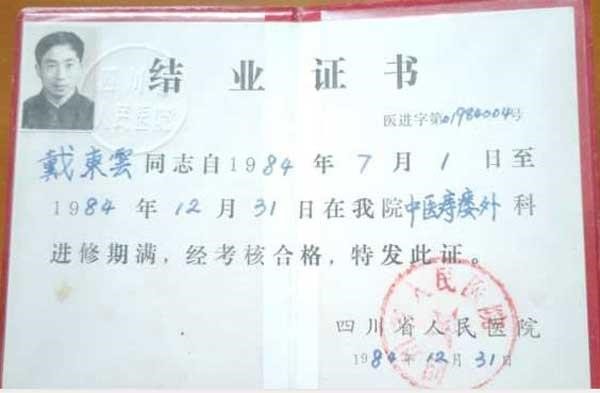 结业证书
四川省
人民医院
医进字第01984004号
戴東雲同志自1984年7月1日至
1984年12月31日在我院中医痔瘘外科
进修期满,经考核合格,特发此证。
四川省人民医院
四川省人民医院
1984年12月31日